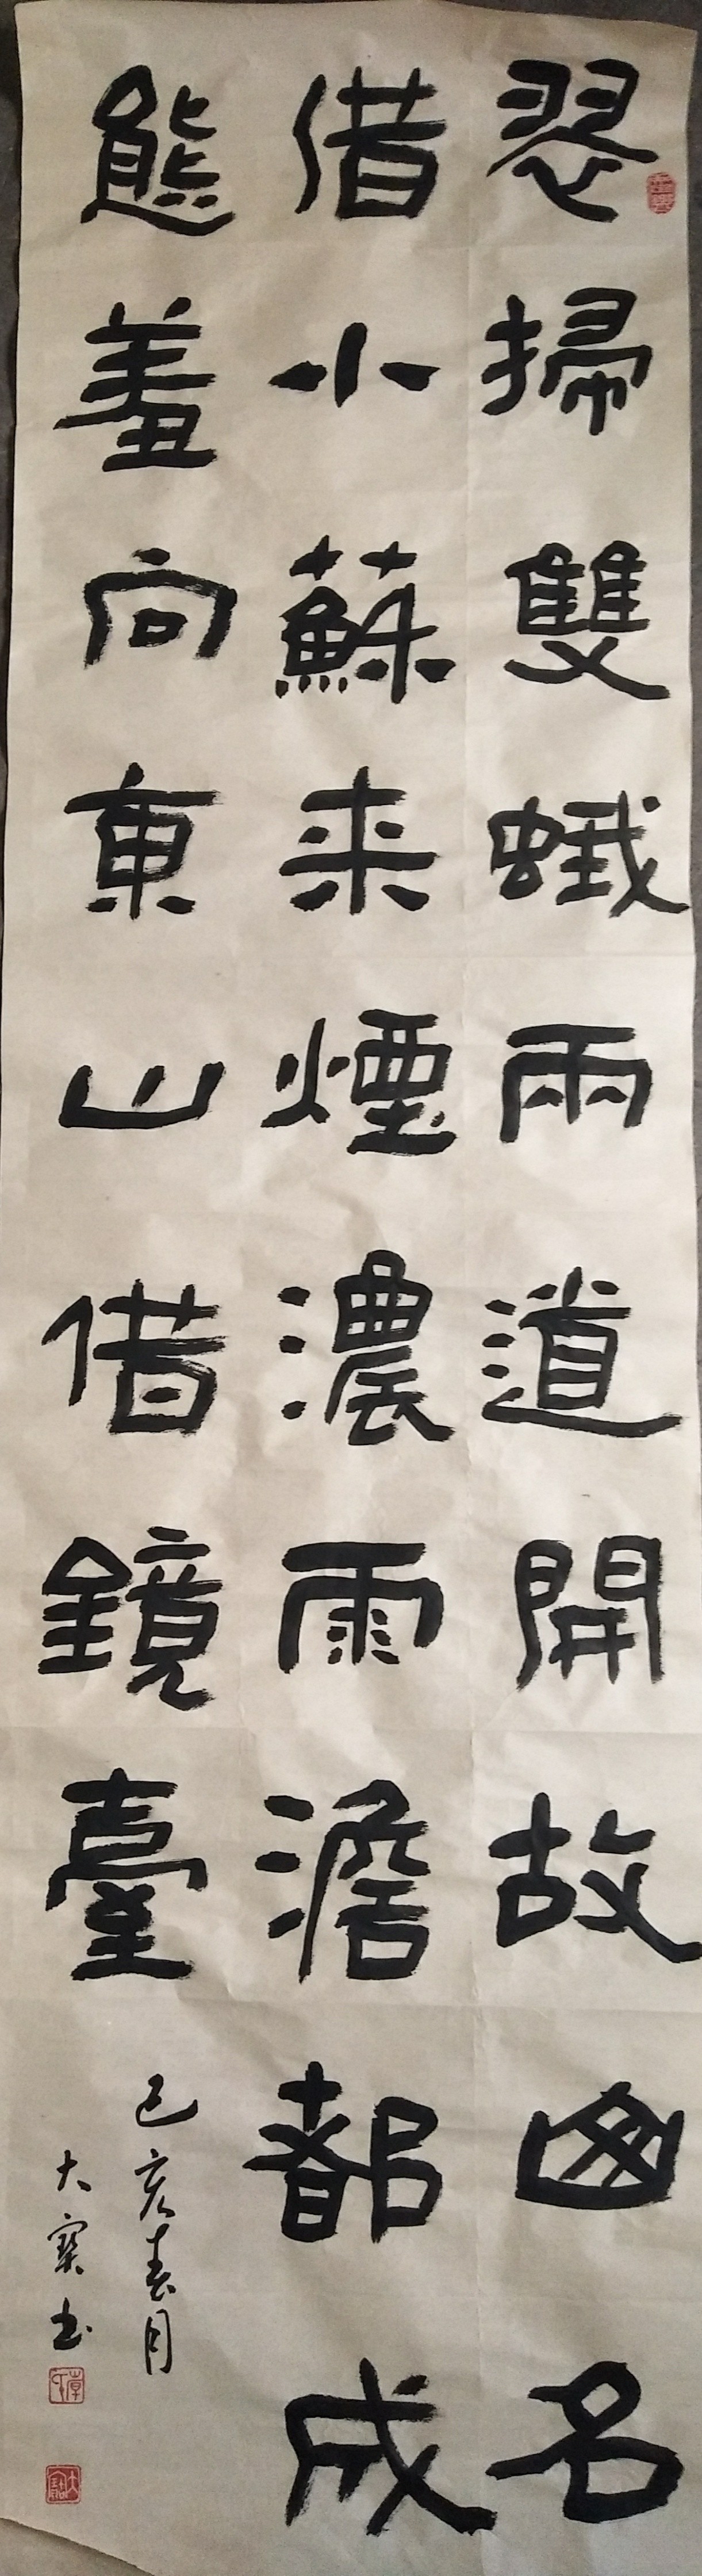 翠掃雙蛾兩道開故因名
借小蘇来煙濃雨澹都成
態羞向東山借鏡臺
己亥春月
大寶书